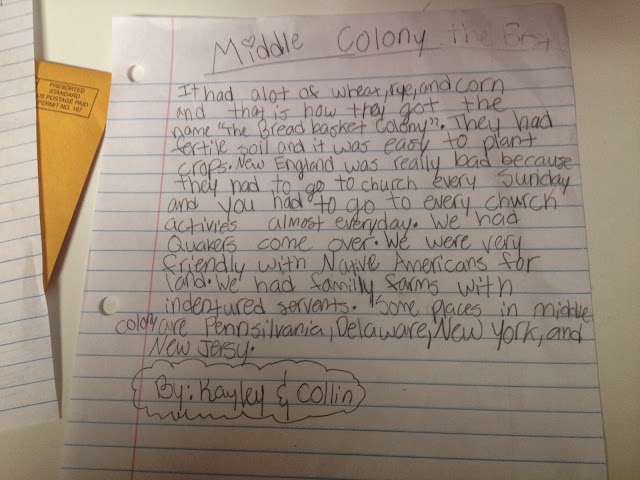 PRESORTED
STANDARD
US POSTAGE PAID
PERMIT NO. 167
Middle Colony the
It had alot of wheat, rye, and corn
and that is how they got the
name "The Bread basket Colony". They had
fertile soil and it was easy to plant
crops. New England was really bad because
they had to go to church every Sunday
and you had to go to every church
activies almost everyday. We had
Quakers come over. We were very
friendly with Native Americans for
land. We had family farms with
indentured servents. Some places in middle
colony are Pennsilvania, Delaware, New York, and
New Jersy.
By: Kayley & Collin